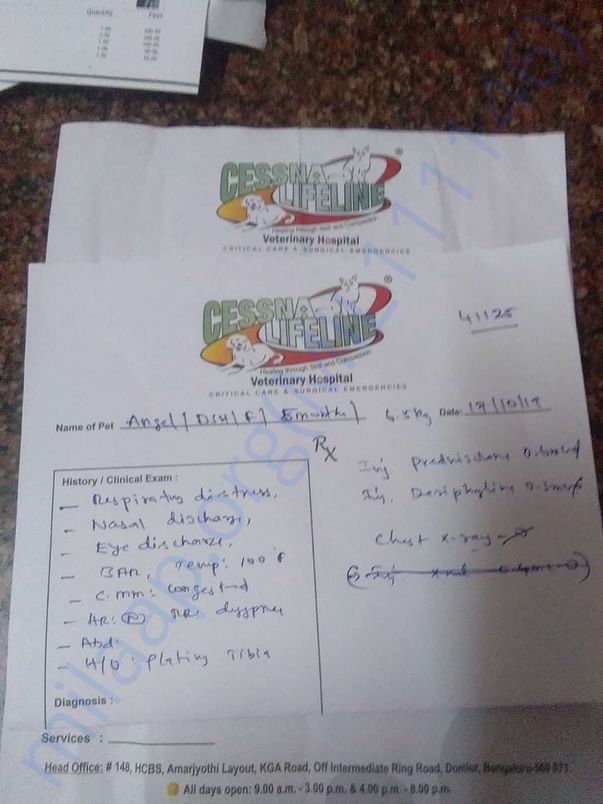 Quantity
CESSNA
LIFELINE
Healing through Skill and Compassion
Veterinary Hospital
CRITICAL CARE & SURGICAL EMERGENCIES
CESSNA
LIFELINE
Healing through Skill and Compassion
Veterinary Hospital
CRITICAL CARE & SURGICAL EMERGENCIES
41125
Name of Pet Angel / DSH / F / 5 months / Date:
Rx
Inj. Prednisolone
Inj. Deriphylline
Chest x-ray
History / Clinical Exam :
- Respiratory distress,
- Nasal discharge,
- Eye discharge,
- BAR, Temp: 100°F
- C.mm: Congested
- HR: (N) RR: dyspnea
- Abd:
- H/O: Plating Tibia
Diagnosis :
Services :
Head Office: # 148, HCBS, Amarjyothi Layout, KGA Road, Off Intermediate Ring Road, Domlur, Bengaluru-560 071.
All days open: 9.00 a.m. - 3.00 p.m. & 4.00 p.m. - 8.00 p.m.
milaap.org